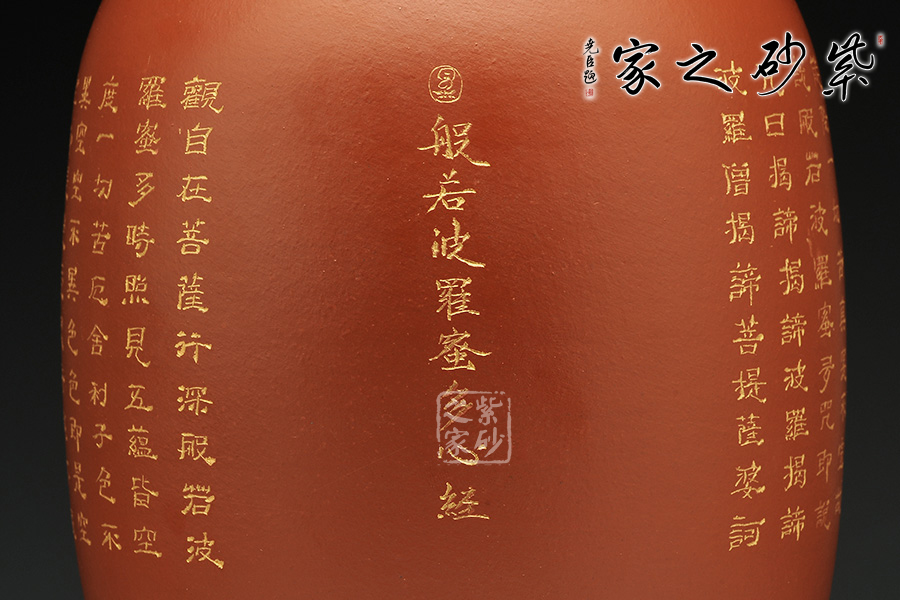 紫砂之家
堯臣題
般若波羅蜜多咒即說
咒曰揭諦揭諦波羅揭諦
波羅僧揭諦菩提薩婆訶
般若波羅蜜多心經
紫砂之家
觀自在菩薩行深般若波
羅蜜多時照見五蘊皆空
度一切苦厄舍利子色不
異空空不異色色即是空